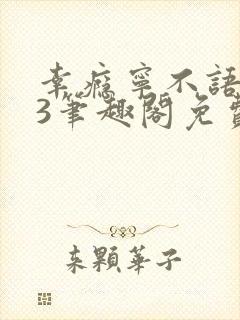 幸瘾宁不語
3筆趣閣免費
来顆華子